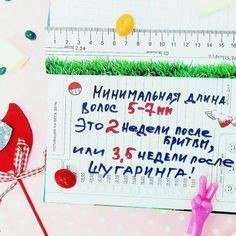 МИНИМАЛЬНАЯ ДЛИНА
ВОЛОС 5-7мм
ЭТО 2 НЕДЕЛИ ПОСЛЕ
БРИТВЫ,
ИЛИ 3,5 НЕДЕЛИ ПОСЛЕ
ШУГАРИНГА!